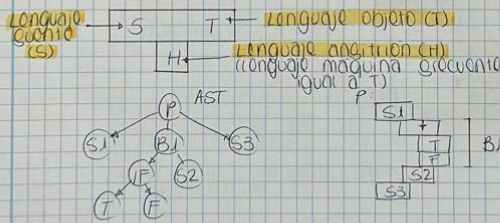 Lenguaje
fuente
(S)
S T
Lenguaje objeto (T)
H
Lenguaje anfitrión (H)
(Lenguaje maquina frecuente
igual a T)
AST
P
S1 B1 S3
IF S2
T F
P:
S1
T
F
B1
S2
S3